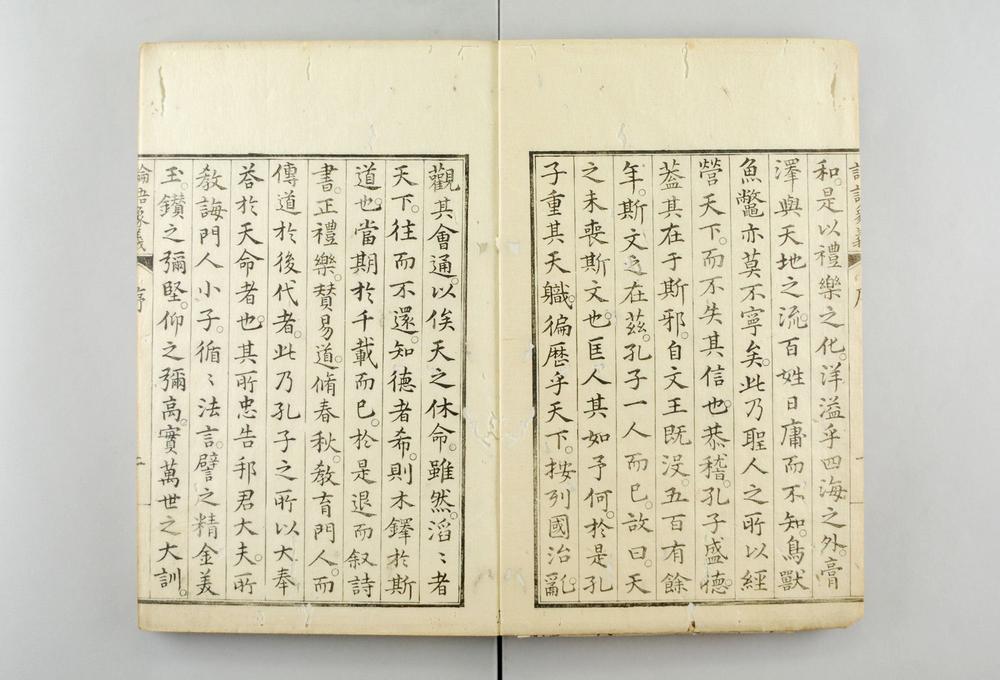 和。是以禮樂之化。洋溢乎四海之外。膏
澤與天地之流。百姓日庸而不知。鳥獸
魚鼈亦莫不寧矣。此乃聖人之所以經
營天下。而不失其信也。恭稽。孔子盛德。
蓋其在于斯邪。自文王既没。五百有餘
年。斯文之在茲。孔子一人而已。故曰。天
之未喪斯文也。匡人其如予何。於是孔
子重其天職。徧歷乎天下。按列國治亂。
觀其會通。以俟天之休命。雖然。滔〻者
天下。往而不還。知德者希。則木鐸於斯
道也。當期於千載而已。於是退而叙詩
書。正禮樂。賛易道。脩春秋。教育門人。而
傳道於後代者。此乃孔子之所以大奉
荅於天命者也。其所忠告邦君大夫。所
教誨門人小子。循〻法言。譬之精金美
玉。鑚之彌堅。仰之彌高。實萬世之大訓。
論語象義
序